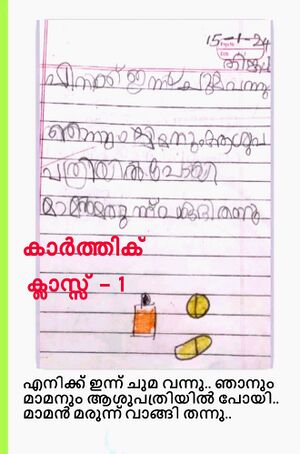 15-1-24
തിങ്കൾ
എനിക്ക് ഇന്ന് ചുമ വന്നു
ഞാനും മാമനും ആശുപ
ത്രിയിൽ പോയി
കാർത്തിക്
ക്ലാസ്സ് - 1
എനിക്ക് ഇന്ന് ചുമ വന്നു.. ഞാനും
മാമനും ആശുപത്രിയിൽ പോയി..
മാമൻ മരുന്ന് വാങ്ങി തന്നു..